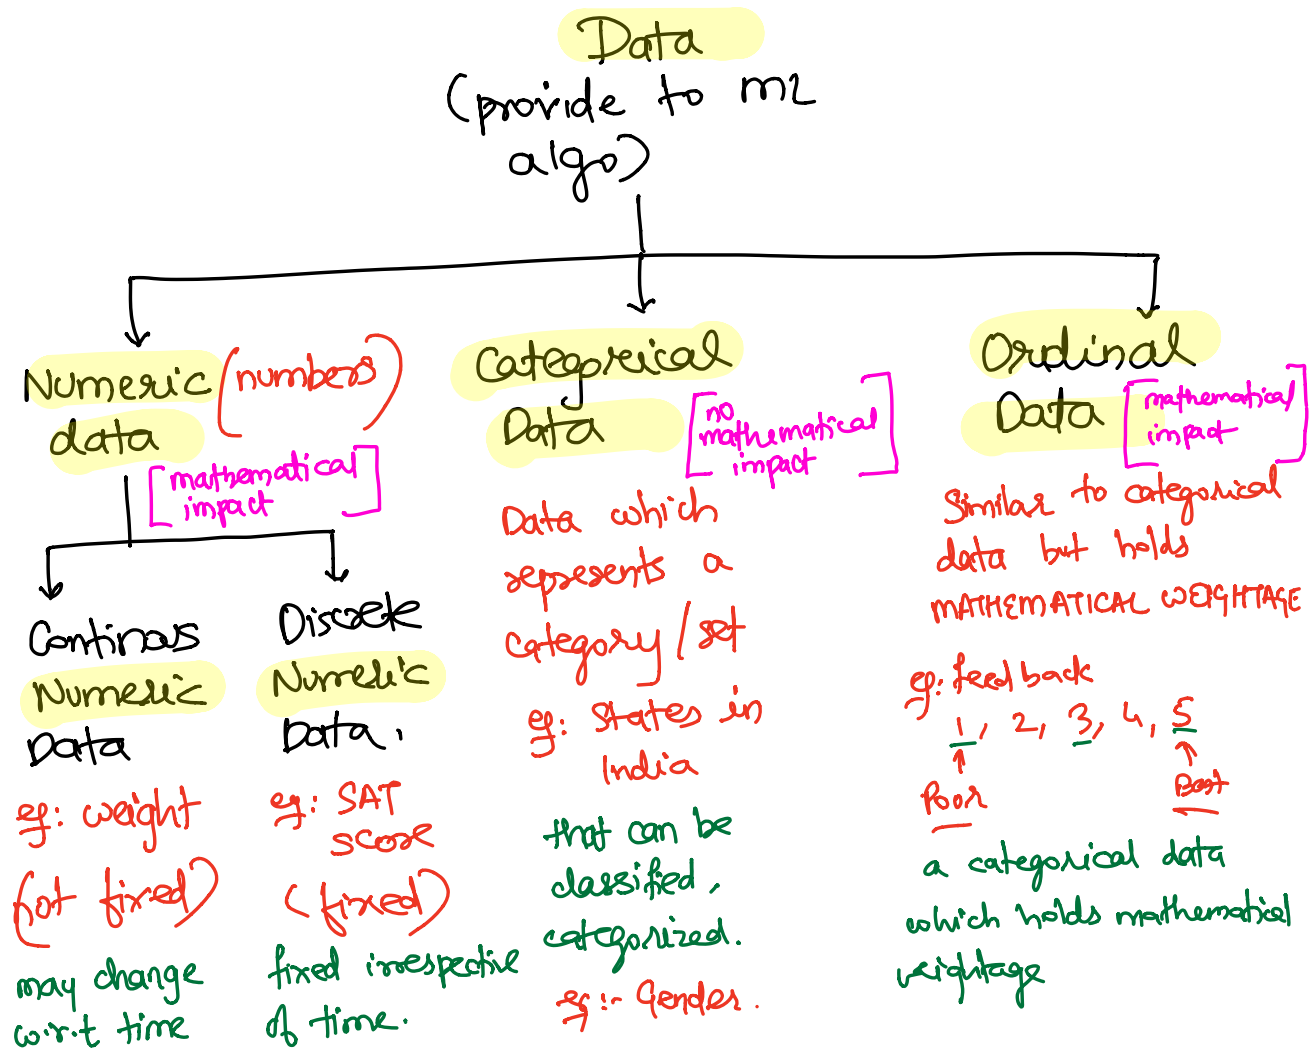 Data
(provide to ML
algo)
Numeric (numbers)
data
[mathematical
impact]
Continous
Numeric
Data
eg: weight
(not fixed)
may change
w.r.t time
Discrete
Numeric
Data.
eg: SAT
score
(fixed)
fixed irrespective
of time.
Categorical
Data
[no
mathematical
impact]
Data which
represents a
category/set
eg: States in
India
that can be
classified,
categorized.
eg:- Gender.
Ordinal
Data
[mathematical
impact]
Similar to categorical
data but holds
MATHEMATICAL WEIGHTAGE
eg: feedback
1, 2, 3, 4, 5
Poor Best
a categorical data
which holds mathematical
weightage